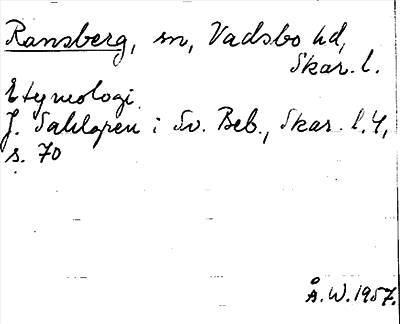 Ransberg, sn, Vadsbo hd,
Skar. l.
Etymologi.
J. Sahlgren i Sv. Beb., Skar. l. 4,
s. 70
Å. W. 1957.